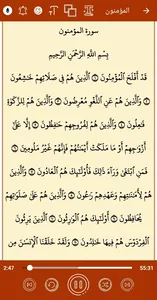 المؤمنون
سورة المؤمنون
بِسْمِ اللَّهِ الرَّحْمَٰنِ الرَّحِيمِ
قَدْ أَفْلَحَ الْمُؤْمِنُونَ ۝ الَّذِينَ هُمْ فِي صَلَاتِهِمْ خَاشِعُونَ
۝ وَالَّذِينَ هُمْ عَنِ اللَّغْوِ مُعْرِضُونَ ۝ وَالَّذِينَ هُمْ لِلزَّكَاةِ
فَاعِلُونَ ۝ وَالَّذِينَ هُمْ لِفُرُوجِهِمْ حَافِظُونَ ۝ إِلَّا عَلَىٰ
أَزْوَاجِهِمْ أَوْ مَا مَلَكَتْ أَيْمَانُهُمْ فَإِنَّهُمْ غَيْرُ مَلُومِينَ ۝
فَمَنِ ابْتَغَىٰ وَرَاءَ ذَٰلِكَ فَأُولَٰئِكَ هُمُ الْعَادُونَ ۝ وَالَّذِينَ
هُمْ لِأَمَانَاتِهِمْ وَعَهْدِهِمْ رَاعُونَ ۝ وَالَّذِينَ هُمْ عَلَىٰ صَلَوَاتِهِمْ
يُحَافِظُونَ ۝ أُولَٰئِكَ هُمُ الْوَارِثُونَ ۝ الَّذِينَ يَرِثُونَ
الْفِرْدَوْسَ هُمْ فِيهَا خَالِدُونَ ۝ وَلَقَدْ خَلَقْنَا الْإِنْسَانَ مِنْ
2:47 55:31